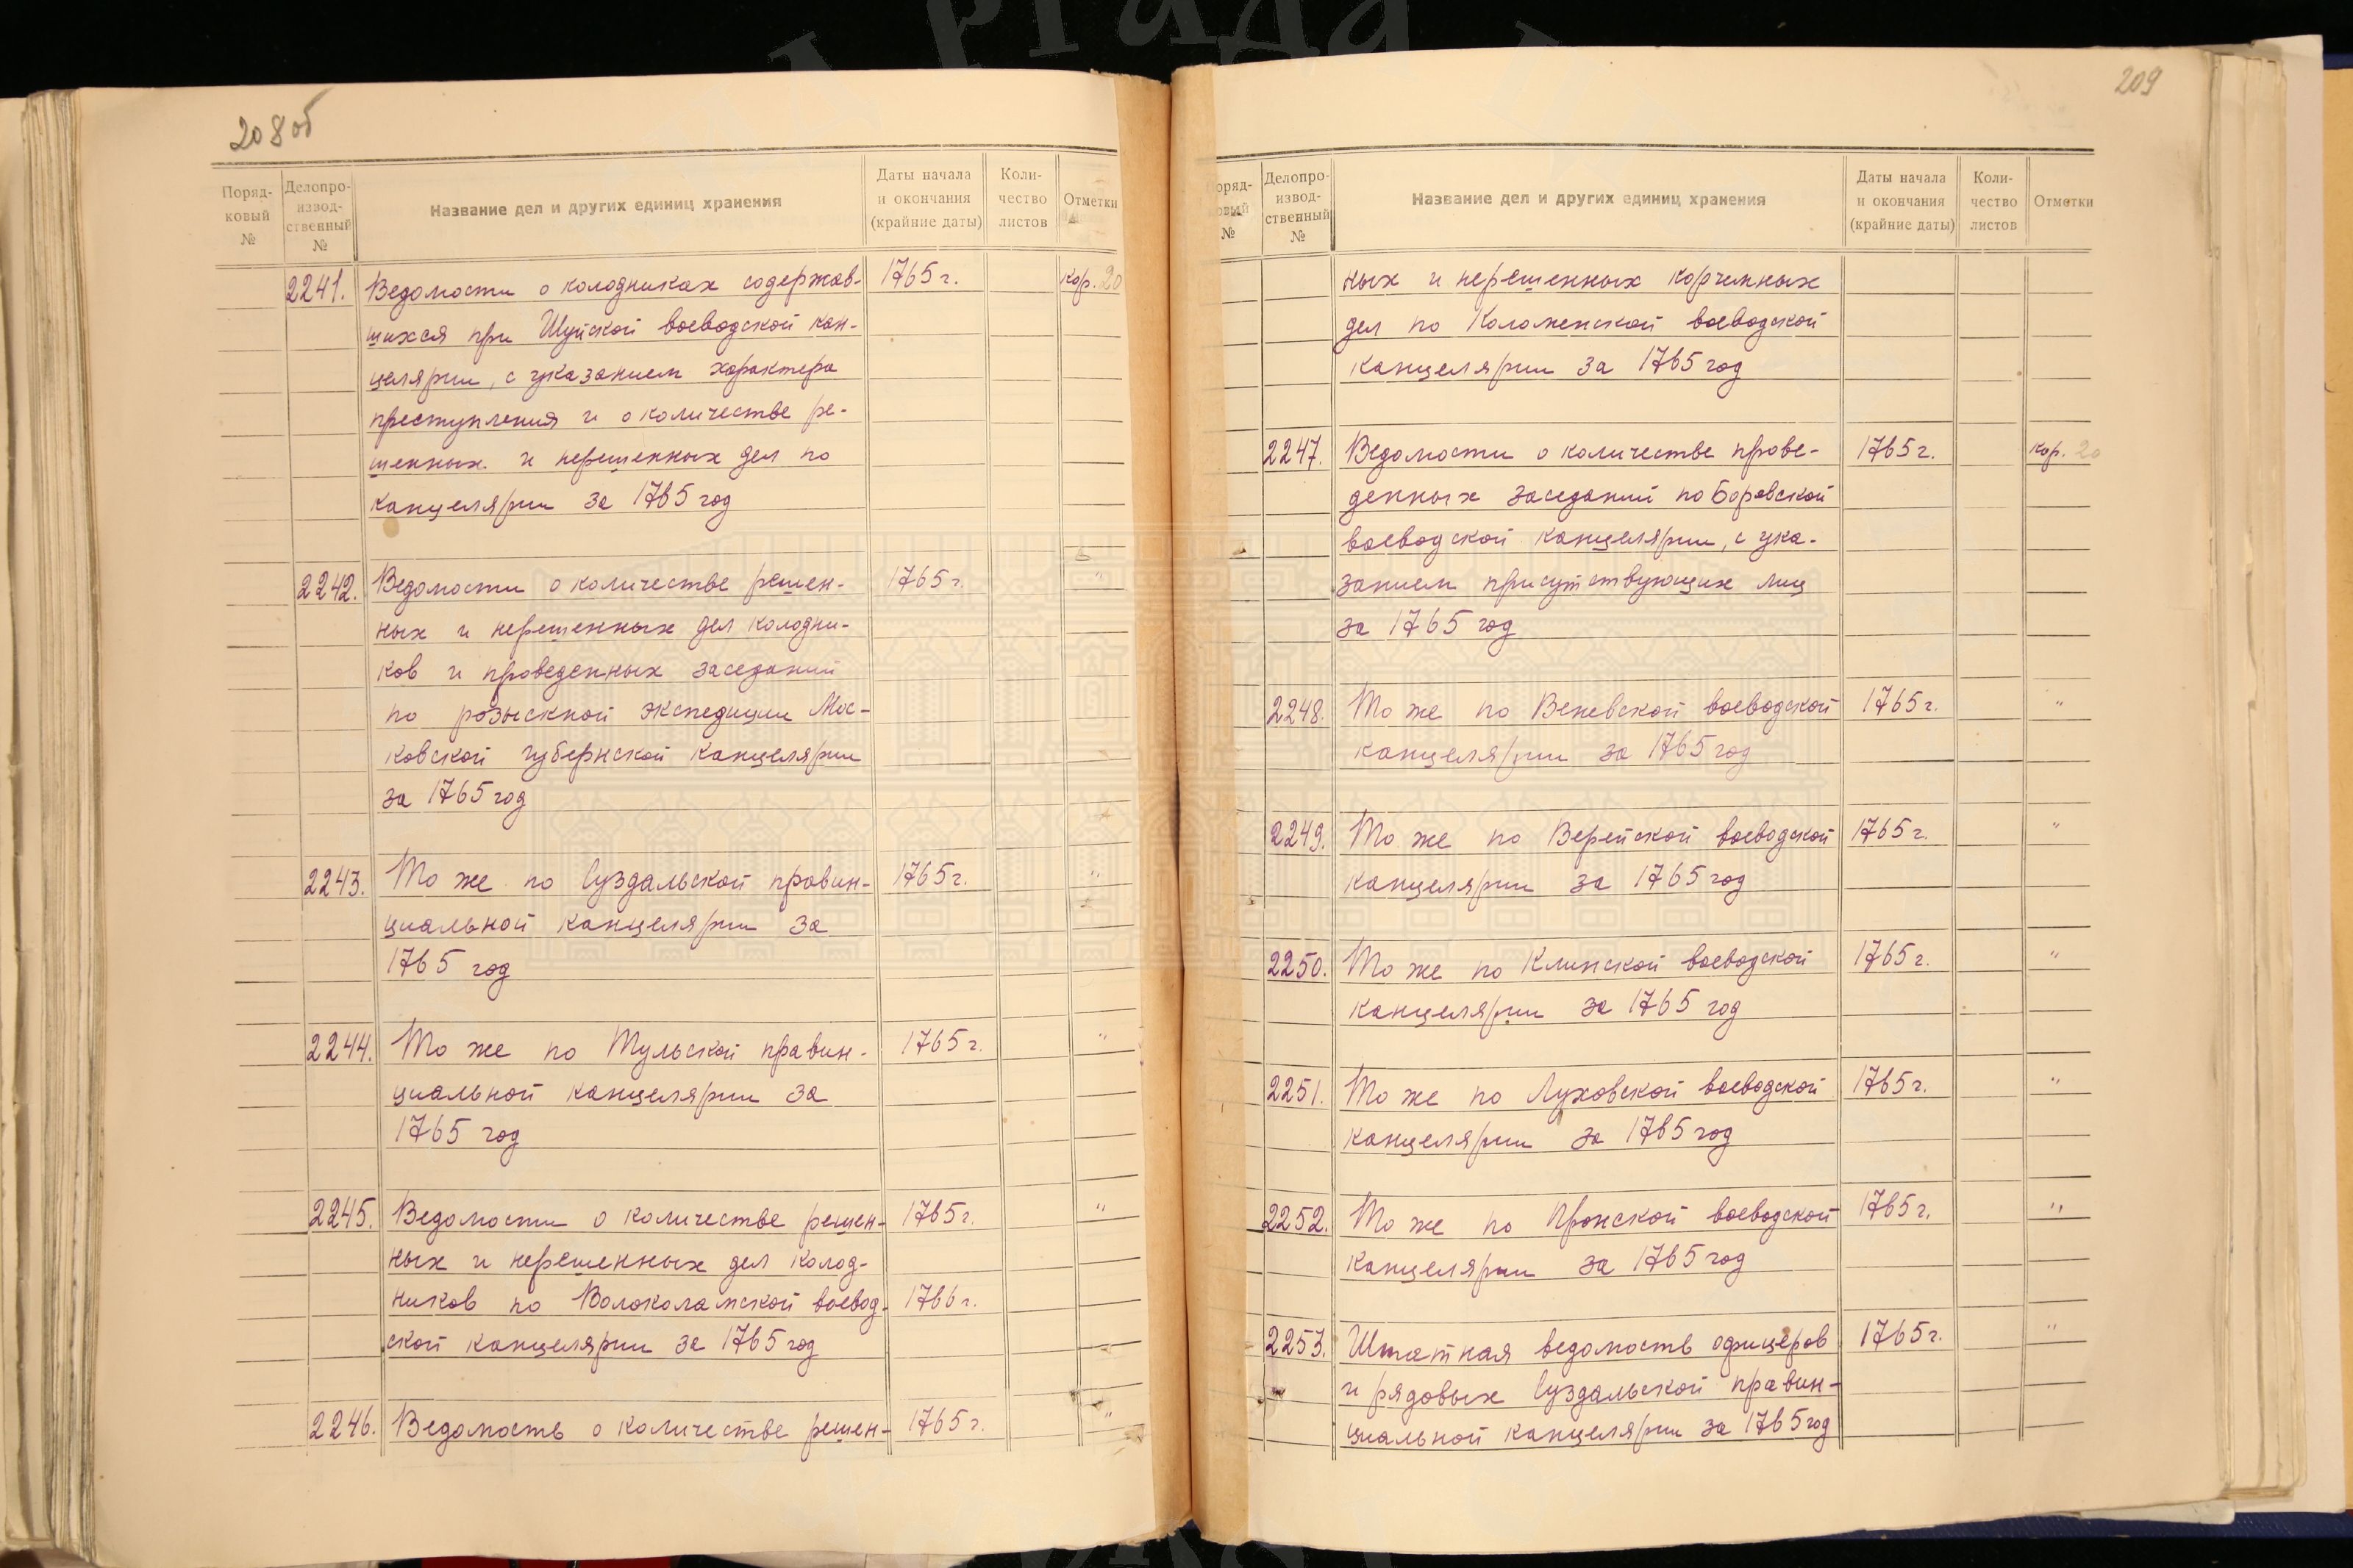 208об
Поряд-
ковый
№
Делопро-
извод-
ственный
№
Название дел и других единиц хранения
Даты начала
и окончания
(крайние даты)
Коли-
чество
листов
Отметки
2241. Ведомости о колодниках содержав- 1765 г. кор. 20
шихся при Шуйской воеводской кан-
целярии, с указанием характера
преступления и о количестве ре-
шенных и нерешенных дел по
канцелярии за 1765 год
2242. Ведомости о количестве решен- 1765 г. "
ных и нерешенных дел колодни-
ков и проведенных заседаний
по розыскной экспедиции Мос-
ковской губернской канцелярии
за 1765 год
2243. То же по Суздальской провин- 1765 г. "
циальной канцелярии за
1765 год
2244. То же по Тульской провин- 1765 г. "
циальной канцелярии за
1765 год
2245. Ведомости о количестве решен- 1765 г. "
ных и нерешенных дел колод-
ников по Волоколамской воевод- 1766 г.
ской канцелярии за 1765 год
2246. Ведомость о количестве решен- 1765 г. "
209
оряд-
овый
№
Делопро-
извод-
ственный
№
Название дел и других единиц хранения
Даты начала
и окончания
(крайние даты)
Коли-
чество
листов
Отметки
ных и нерешенных корчемных
дел по Коломенской воеводской
канцелярии за 1765 год
2247. Ведомости о количестве прове- 1765 г. кор. 20
денных заседаний по Боровской
воеводской канцелярии, с ука-
занием присутствующих лиц
за 1765 год
2248. То же по Веневской воеводской 1765 г. "
канцелярии за 1765 год
2249. То же по Верейской воеводской 1765 г. "
канцелярии за 1765 год
2250. То же по Клинской воеводской 1765 г. "
канцелярии за 1765 год
2251. То же по Луховской воеводской 1765 г. "
канцелярии за 1765 год
2252. То же по Пронской воеводской 1765 г. "
канцелярии за 1765 год
2253. Штатная ведомость офицеров 1765 г. "
и рядовых Суздальской провин-
циальной канцелярии за 1765 год